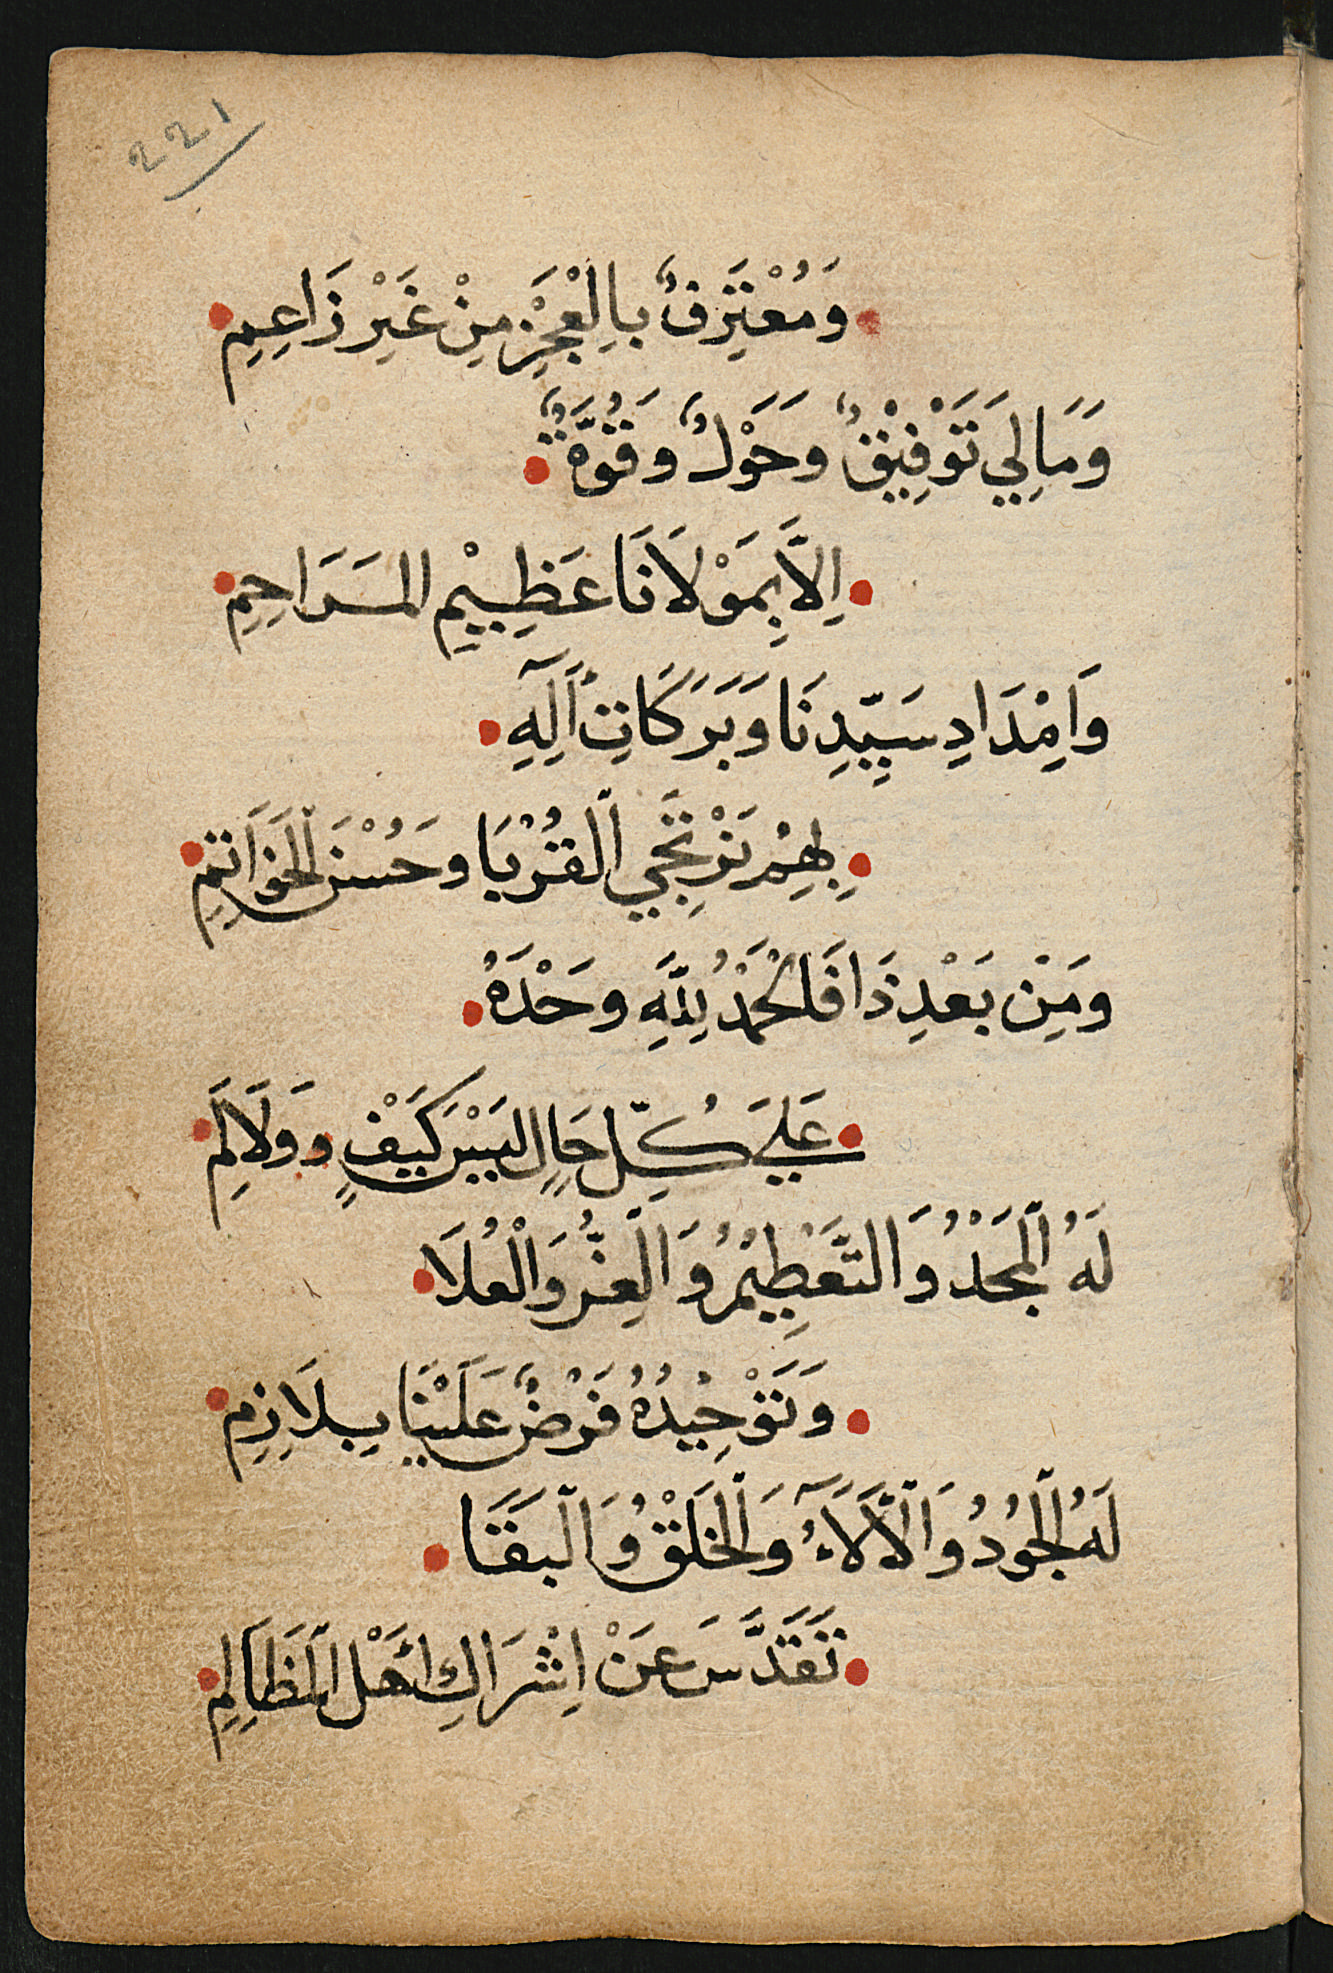 221
وَمُعْتَرِفٌ بِالْعَجْزِ مِنْ غَيْرِ زَاعِمِ
وَمَا لِي تَوْفِيْقٌ وَحَوْلٌ وَقُوَّةٌ
اِلَّا بِمَوْلَانَا عَظِيْمِ المَرَاحِمِ
وَاِمْدَادِ سَيِّدِنَا وَبَرَكَاتِ آلِهِ
بِهِمْ نَرْتَجِي الْقُرْبَا وَحُسْنَ الْخَوَاتِمِ
وَمِنْ بَعْدِ ذَا فَالْحَمْدُ لِلَّهِ وَحْدَهُ
عَلَى كُلِّ حَالٍ لَيْسَ كَيْفٍ وَوَلَالَمِ
لَهُ الْمَجْدُ وَالتَّعْظِيْمُ وَالْعِزُّ وَالْعُلَا
وَتَوْحِيْدُهُ فَرْضٌ عَلَيْنَا بِلَازِمِ
لَهُ الْجُوْدُ وَالْأَلَآءُ وَالْخَلْقُ وَالْبَقَا
تَقَدَّسَ عَنْ اِشْرَاكِ أَهْلِ الْمَظَالِمِ